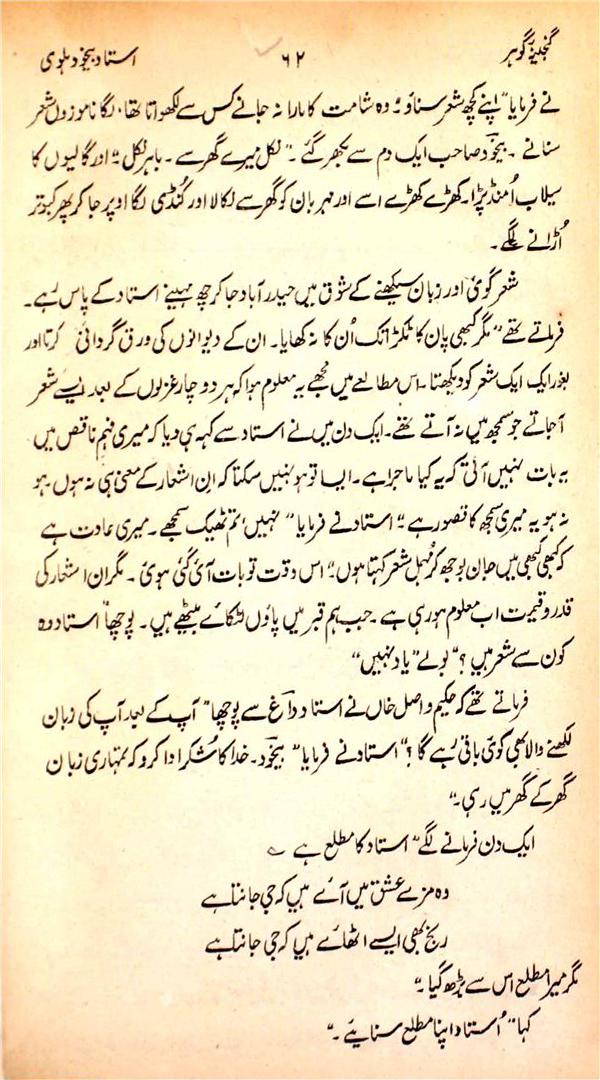 گنجینۂ گوہر ۶۲ استاد بیخود دہلوی
نے فرمایا “اپنے کچھ شعر سناؤ۔” وہ شامت کا مارا نہ جانے کس سے لکھواتا تھا، لگا ناموزوں شعر
سنانے ۔ بیخود صاحب ایک دم سے بکھر گئے ۔ “نکل میرے گھر سے ۔ باہر نکل ۔” اور گالیوں کا
سیلاب اُمنڈ پڑا۔ کھڑے کھڑے اسے اور نہربان کو گھر سے نکالا اور کُنڈی لگا اوپر جا کر پھر کبوتر
اُڑانے لگے ۔
شعر گوئی اور زبان سیکھنے کے شوق میں حیدر آباد جا کر چھ مہینے استاد کے پاس رہے ۔
فرماتے تھے “مگر کبھی پان کا ٹکڑا تک اُن کا نہ کھایا۔ ان کے دیوانوں کی ورق گردانی کرتا اور
بغور ایک ایک شعر کو دیکھتا ۔ اس مطالعے میں مجھے یہ معلوم ہوا کہ ہر دو چار غزلوں کے بعد ایسے شعر
آجاتے جو سمجھ میں نہ آتے تھے ۔ ایک دن میں نے استاد سے کہہ ہی دیا کہ میری فہم ناقص میں
یہ بات نہیں آئی کہ یہ کیا ماجرا ہے ۔ ایسا تو ہو نہیں سکتا کہ ان اشعار کے معنی ہی نہ ہوں ، ہو
نہ ہو یہ میری سمجھ کا قصور ہے ۔” استاد نے فرمایا “نہیں، تم ٹھیک سمجھے ۔ میری عادت ہے
کہ کبھی کبھی میں جان بوجھ کر مُہمل شعر کہتا ہوں ۔” اس وقت تو بات آئی گئی ہوئی ۔ مگر ان اشعار کی
قدر و قیمت اب معلوم ہو رہی ہے ۔ جب ہم قبر میں پاؤں لٹکائے بیٹھے ہیں ۔ پوچھا “استاد وہ
کون سے شعر ہیں ؟” بولے “یاد نہیں”
فرماتے تھے کہ حکیم واصل خاں نے استاد داغ سے پوچھا “آپ کے بعد آپ کی زبان
لکھنے والا بھی کوئی باقی رہے گا ؟” استاد نے فرمایا “بیخود ۔ خدا کا شکر ادا کرو کہ تمہاری زبان
گھر کے گھر میں رہی ۔”
ایک دن فرمانے لگے “استاد کا مطلع ہے ؎
وہ مزے عشق میں آئے ہیں کہ جی جانتا ہے
رنج بھی ایسے اٹھائے ہیں کہ جی جانتا ہے
مگر میرا مطلع اس سے بڑھ گیا ۔”
کہا “اُستاد اپنا مطلع سنایئے ۔”